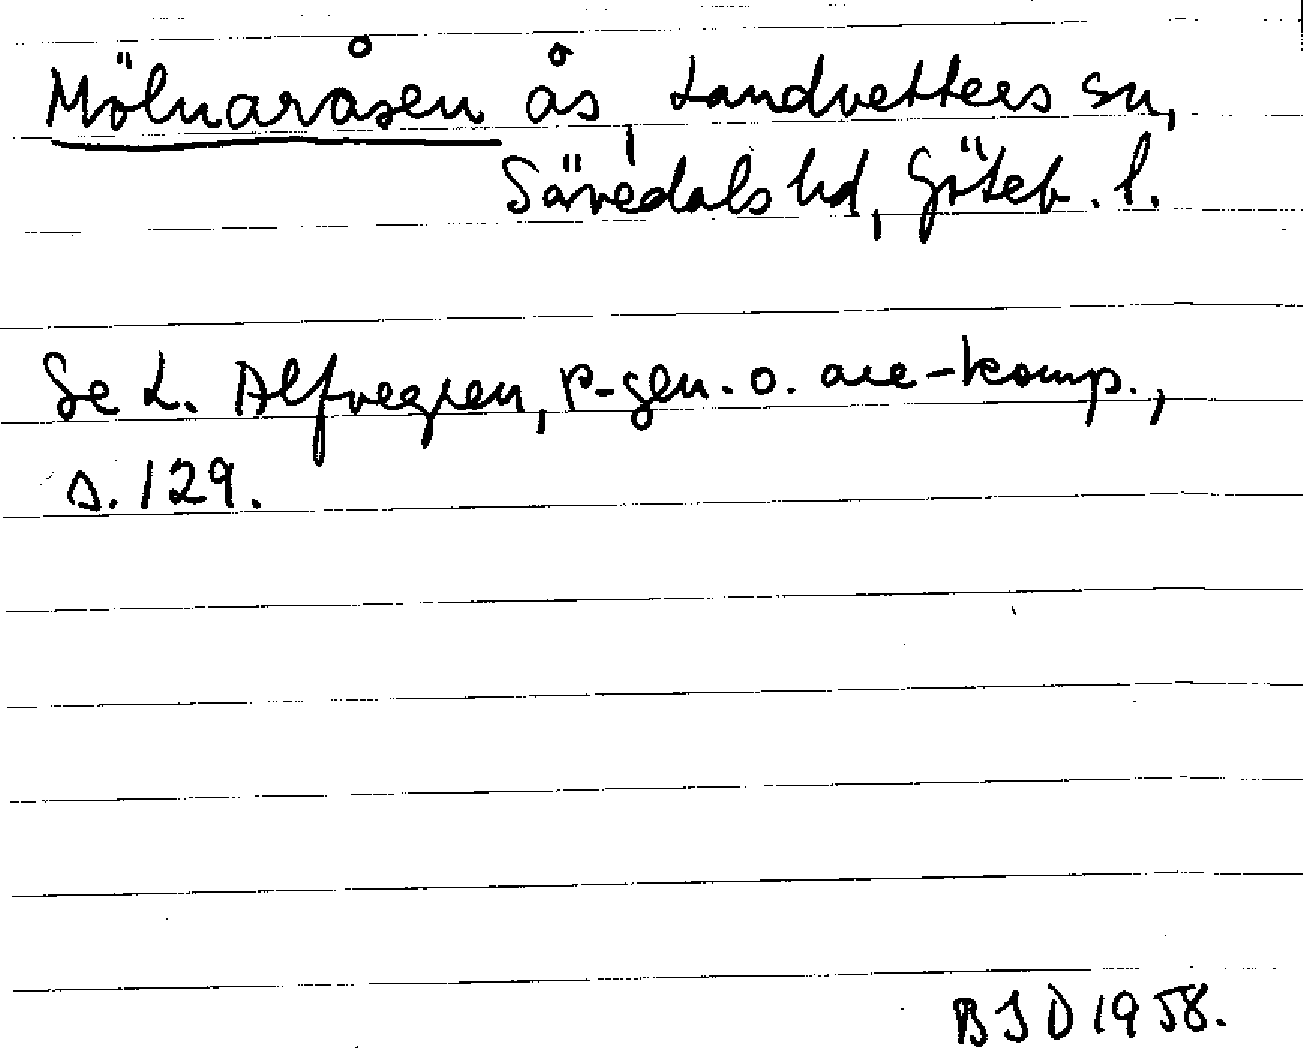 Mölnaråsen ås, Landvetters sn,
Sävedals hd, Göteb. l.
Se L. Alfvegren, r-gen. o. are-komp.,
s. 129.
BJD 1958.